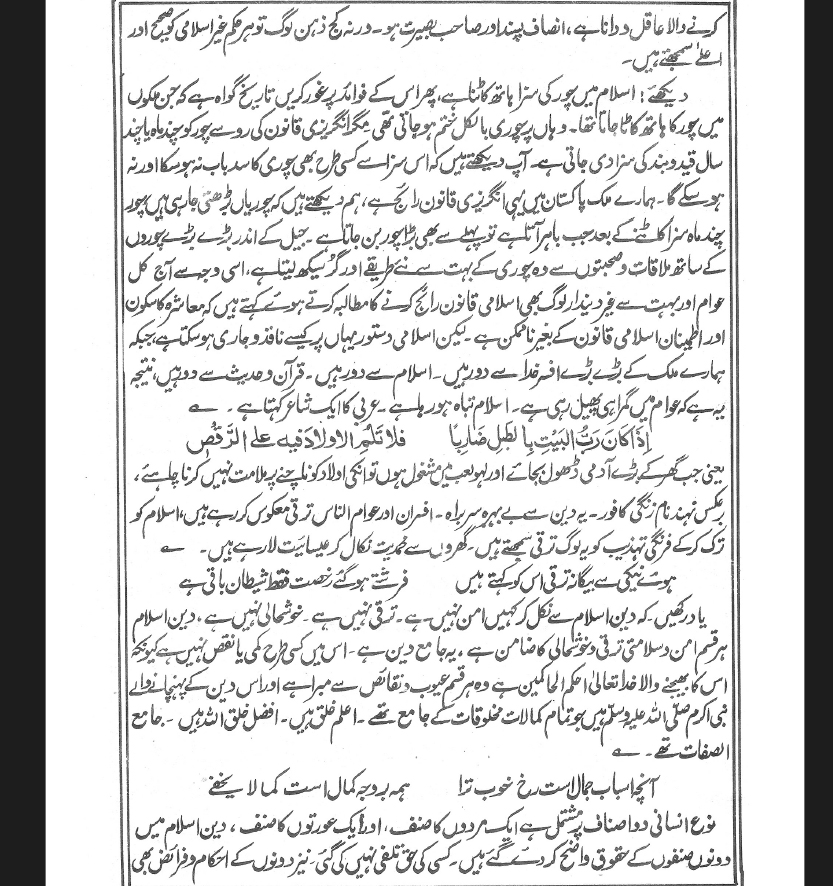 کرنے والا عاقل و دانا ہے، انصاف پسند اور صاحب بصیرت ہو۔ ورنہ کج ذہن لوگ تو ہر حکم غیر اسلامی کو صحیح اور
اعلیٰ سمجھتے ہیں۔
دیکھئے: اسلام میں چور کی سزا ہاتھ کاٹنا ہے، پھر اس کے فوائد پر غور کریں تاریخ گواہ ہے کہ جن ملکوں
میں چور کا ہاتھ کاٹا جاتا تھا۔ وہاں پر چوری بالکل ختم ہو جاتی تھی مگر انگریزی قانون کی رو سے چور کو چند ماہ یا چند
سال قید و بند کی سزا دی جاتی ہے۔ آپ دیکھتے ہیں کہ اس سزا سے کسی طرح بھی چوری کا سدباب نہ ہو سکا اور نہ
ہو سکے گا۔ ہمارے ملک پاکستان میں یہی انگریزی قانون رائج ہے، ہم دیکھتے ہیں کہ چوریاں بڑھتی جا رہی ہیں چور
چند ماہ سزا کاٹنے کے بعد جب باہر آتا ہے تو پہلے سے بھی بڑا چور بن جاتا ہے۔ جیل کے اندر بڑے بڑے چوروں
کے ساتھ ملاقات و صحبتوں سے وہ چوری کے بہت سے نئے طریقے اور گُر سیکھ لیتا ہے، اسی وجہ سے آج کل
عوام اور بہت سے غیر دیندار لوگ بھی اسلامی قانون رائج کرنے کا مطالبہ کرتے ہوئے کہتے ہیں کہ معاشرہ کا سکون
اور اطمینان اسلامی قانون کے بغیر ناممکن ہے۔ لیکن اسلامی دستور یہاں پر کیسے نافذ و جاری ہو سکتا ہے، جبکہ
ہمارے ملک کے بڑے بڑے افسر خدا سے دور ہیں۔ اسلام سے دور ہیں۔ قرآن و حدیث سے دور ہیں، نتیجہ
یہ ہے کہ عوام میں گمراہی پھیل رہی ہے۔ اسلام تباہ ہو رہا ہے۔ عربی کا ایک شاعر کہتا ہے۔ ؎
اِذَا كَانَ رَبُّ الْبَيْتِ بِالطَّبْلِ ضَارِبًا فَلَا تَلُمِ الْاَوْلَادَ فِيهِ عَلَى الرَّقْصِ
یعنی جب گھر کے بڑے آدمی ڈھول بجائے اور لہو لعب میں مشغول ہوں تو انکی اولاد کو ناچنے پر ملامت نہیں کرنا چاہئے،
برعکس نہند نام زنگی کافور۔ یہ دین سے بے بہرہ سربراہ۔ افسران اور عوام الناس ترقی معکوس کر رہے ہیں، اسلام کو
ترک کر کے فرنگی تہذیب کو یہ لوگ ترقی سمجھتے ہیں۔ گھروں سے محمدیت نکال کر عیسائیت لا رہے ہیں۔ ؎
ہوئے نیکی سے بیگانہ ترقی اس کو کہتے ہیں فرشتے ہو گئے رخصت فقط شیطان باقی ہے
یاد رکھیں۔ کہ دین اسلام سے نکل کر کہیں امن نہیں ہے۔ ترقی نہیں ہے۔ خوشحالی نہیں ہے، دین اسلام
ہر قسم امن و سلامتی ترقی و خوشحالی کا ضامن ہے، یہ جامع دین ہے۔ اس میں کسی طرح کمی یا نقص نہیں ہے کیونکہ
اس کا بھیجنے والا خدا تعالیٰ احکم الحاکمین ہے وہ ہر قسم عیوب و نقائص سے مبرا ہے اور اس دین کے پہنچانے والے
نبی اکرم صلی اللہ علیہ وسلم ہیں جو تمام کمالات مخلوقات کے جامع تھے۔ اعلم خلق ہیں۔ افضل خلق اللہ ہیں۔ جامع
الصفات تھے۔ ؎
آنچہ اسباب جمال است رخ خوب ترا ہمہ بر وجہ کمال است کما لا یخفےٰ
نوع انسانی دو اصناف پر مشتمل ہے ایک مردوں کا صنف، اور ایک عورتوں کا صنف، دین اسلام میں
دونوں صنفوں کے حقوق واضح کر دئے گئے ہیں۔ کسی کی حق تلفی نہیں کی گئی۔ نیز دونوں کے احکام و فرائض بھی